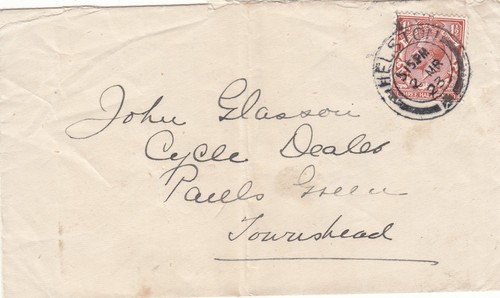 HELSTON
5.15 PM
2 MR
23
John Glasson
Cycle Dealer
Pauls Green
Townshead